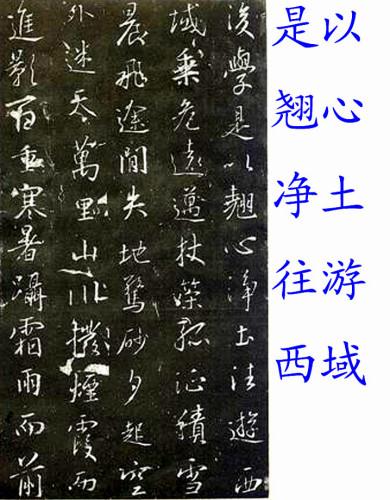 後學是以翹心淨土往遊西
域乘危遠邁杖策孤征積雪
晨飛途間失地驚砂夕起空
外迷天萬里山川撥煙霞而
進影百重寒暑躡霜雨而前
是以
翘心
净土
往游
西域